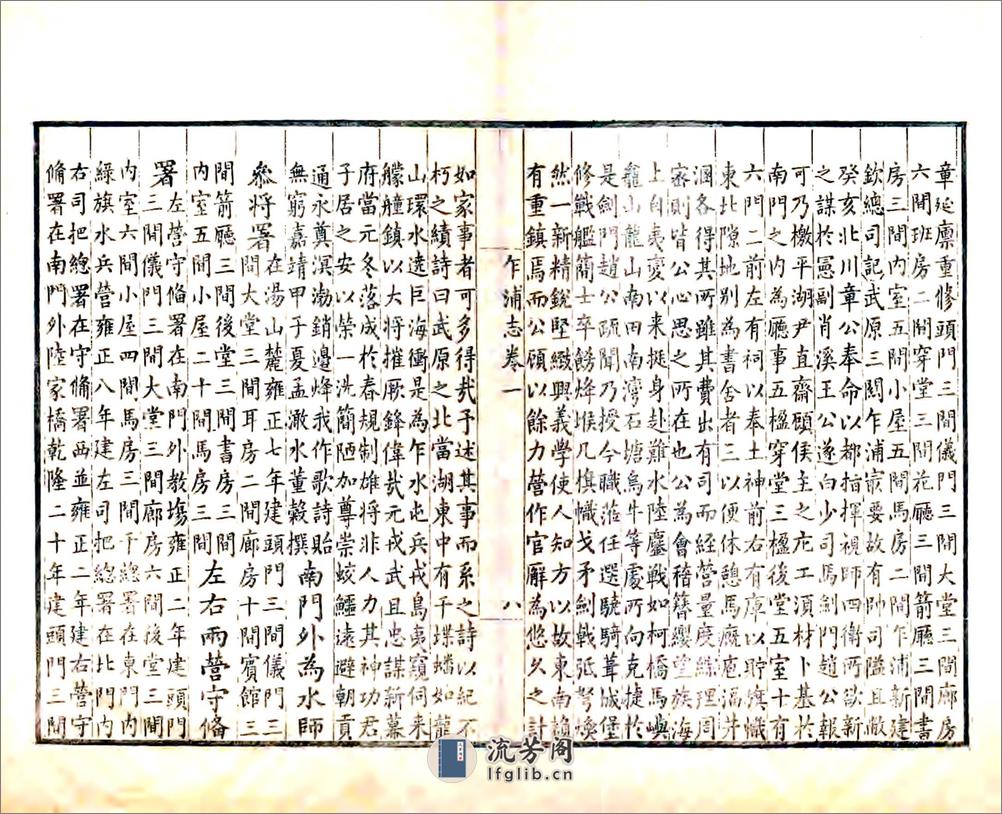 章延廪重修頭門三間儀門三間大堂三間廊房
六間班房二間穿堂三間花廳三間箭廳三間書
房三間內室五間小屋五間馬房二間乍浦新建
欽總司記武原三関乍浦最要故有帥司隘且敝
癸亥北川章公奉命以都指揮視師四衛所欲新
之謀於憲副肖溪王公遂白少司馬劍門趙公報
可乃檄平湖尹直齋顧侯主之庀工湏材卜基於
南門之內為廳事五楹穿堂三楹後堂五室十有
六門二前左有祠以奉土神前右有庫以貯旗幟
東北隙地别為書舍者三以便休憩馬廐庖湢井
溷各得其所雖其費出有司而經營量度綜理周
密則皆公心思之所在也公為會稽簪纓望族海
上自夷變以來挺身赴難水陸鏖戰如柯橋馬嶼
龕山龍山南田南灣石塘烏牛等處所向克捷於
是劍門趙公疏聞乃授今職蒞任選驍騎葺城堡
修戰艦簡士卒餝烽堠几旗幟戈矛劍戟弧弩煥
然一新精銳堅緻興義學使人知方以故東南賴
有重鎮焉而公頋以餘力營作官廨為悠久之計
乍浦志卷一　八
如家事者可多得哉予述其事而系之詩以紀不
朽之績詩曰武原之北當湖東中有千堞蟠如龍
山環水遶巨海衝是為乍水屯兵戎鳥夷窺伺来
艨艟鎮以大将摧厥鋒偉哉元戎武且忠謀新幕
府當元冬落成於春規制雄将非人力其神功君
子居之安以榮一洗簡陋加尊崇蛟鱷遠避朝貢
通永奠溟渤銷邊烽我作歌詩貽
無窮嘉靖甲子夏孟澉水董榖撰　南門外為水師
叅将署在湯山麓雍正七年建頭門三間儀門三
間箭廳三間後堂三間書房二間廊房十間賓館三
內室五間小屋二十間馬房三間　左右兩營守俻
署左營守俻署在南門外教塲雍正二年建頭門
三間儀門三間大堂三間廊房六間後堂三間
內室六間小屋四間馬房三間千總署在東門內
綠旗水兵營雍正八年建左司把總署在北門內
右司把總署在守俻署西並雍正二年建右營守
俻署在南門外陸家橋乾隆二十年建頭門三間
流芳阁
lfglib.cn